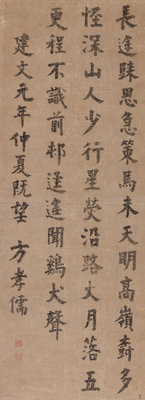 長途歸思急策馬未天明高嶺奇多
怪深山人少行星熒沿路火月落五
更程不識前邨逕遙聞鷄犬聲
建文元年仲夏既望 方孝儒